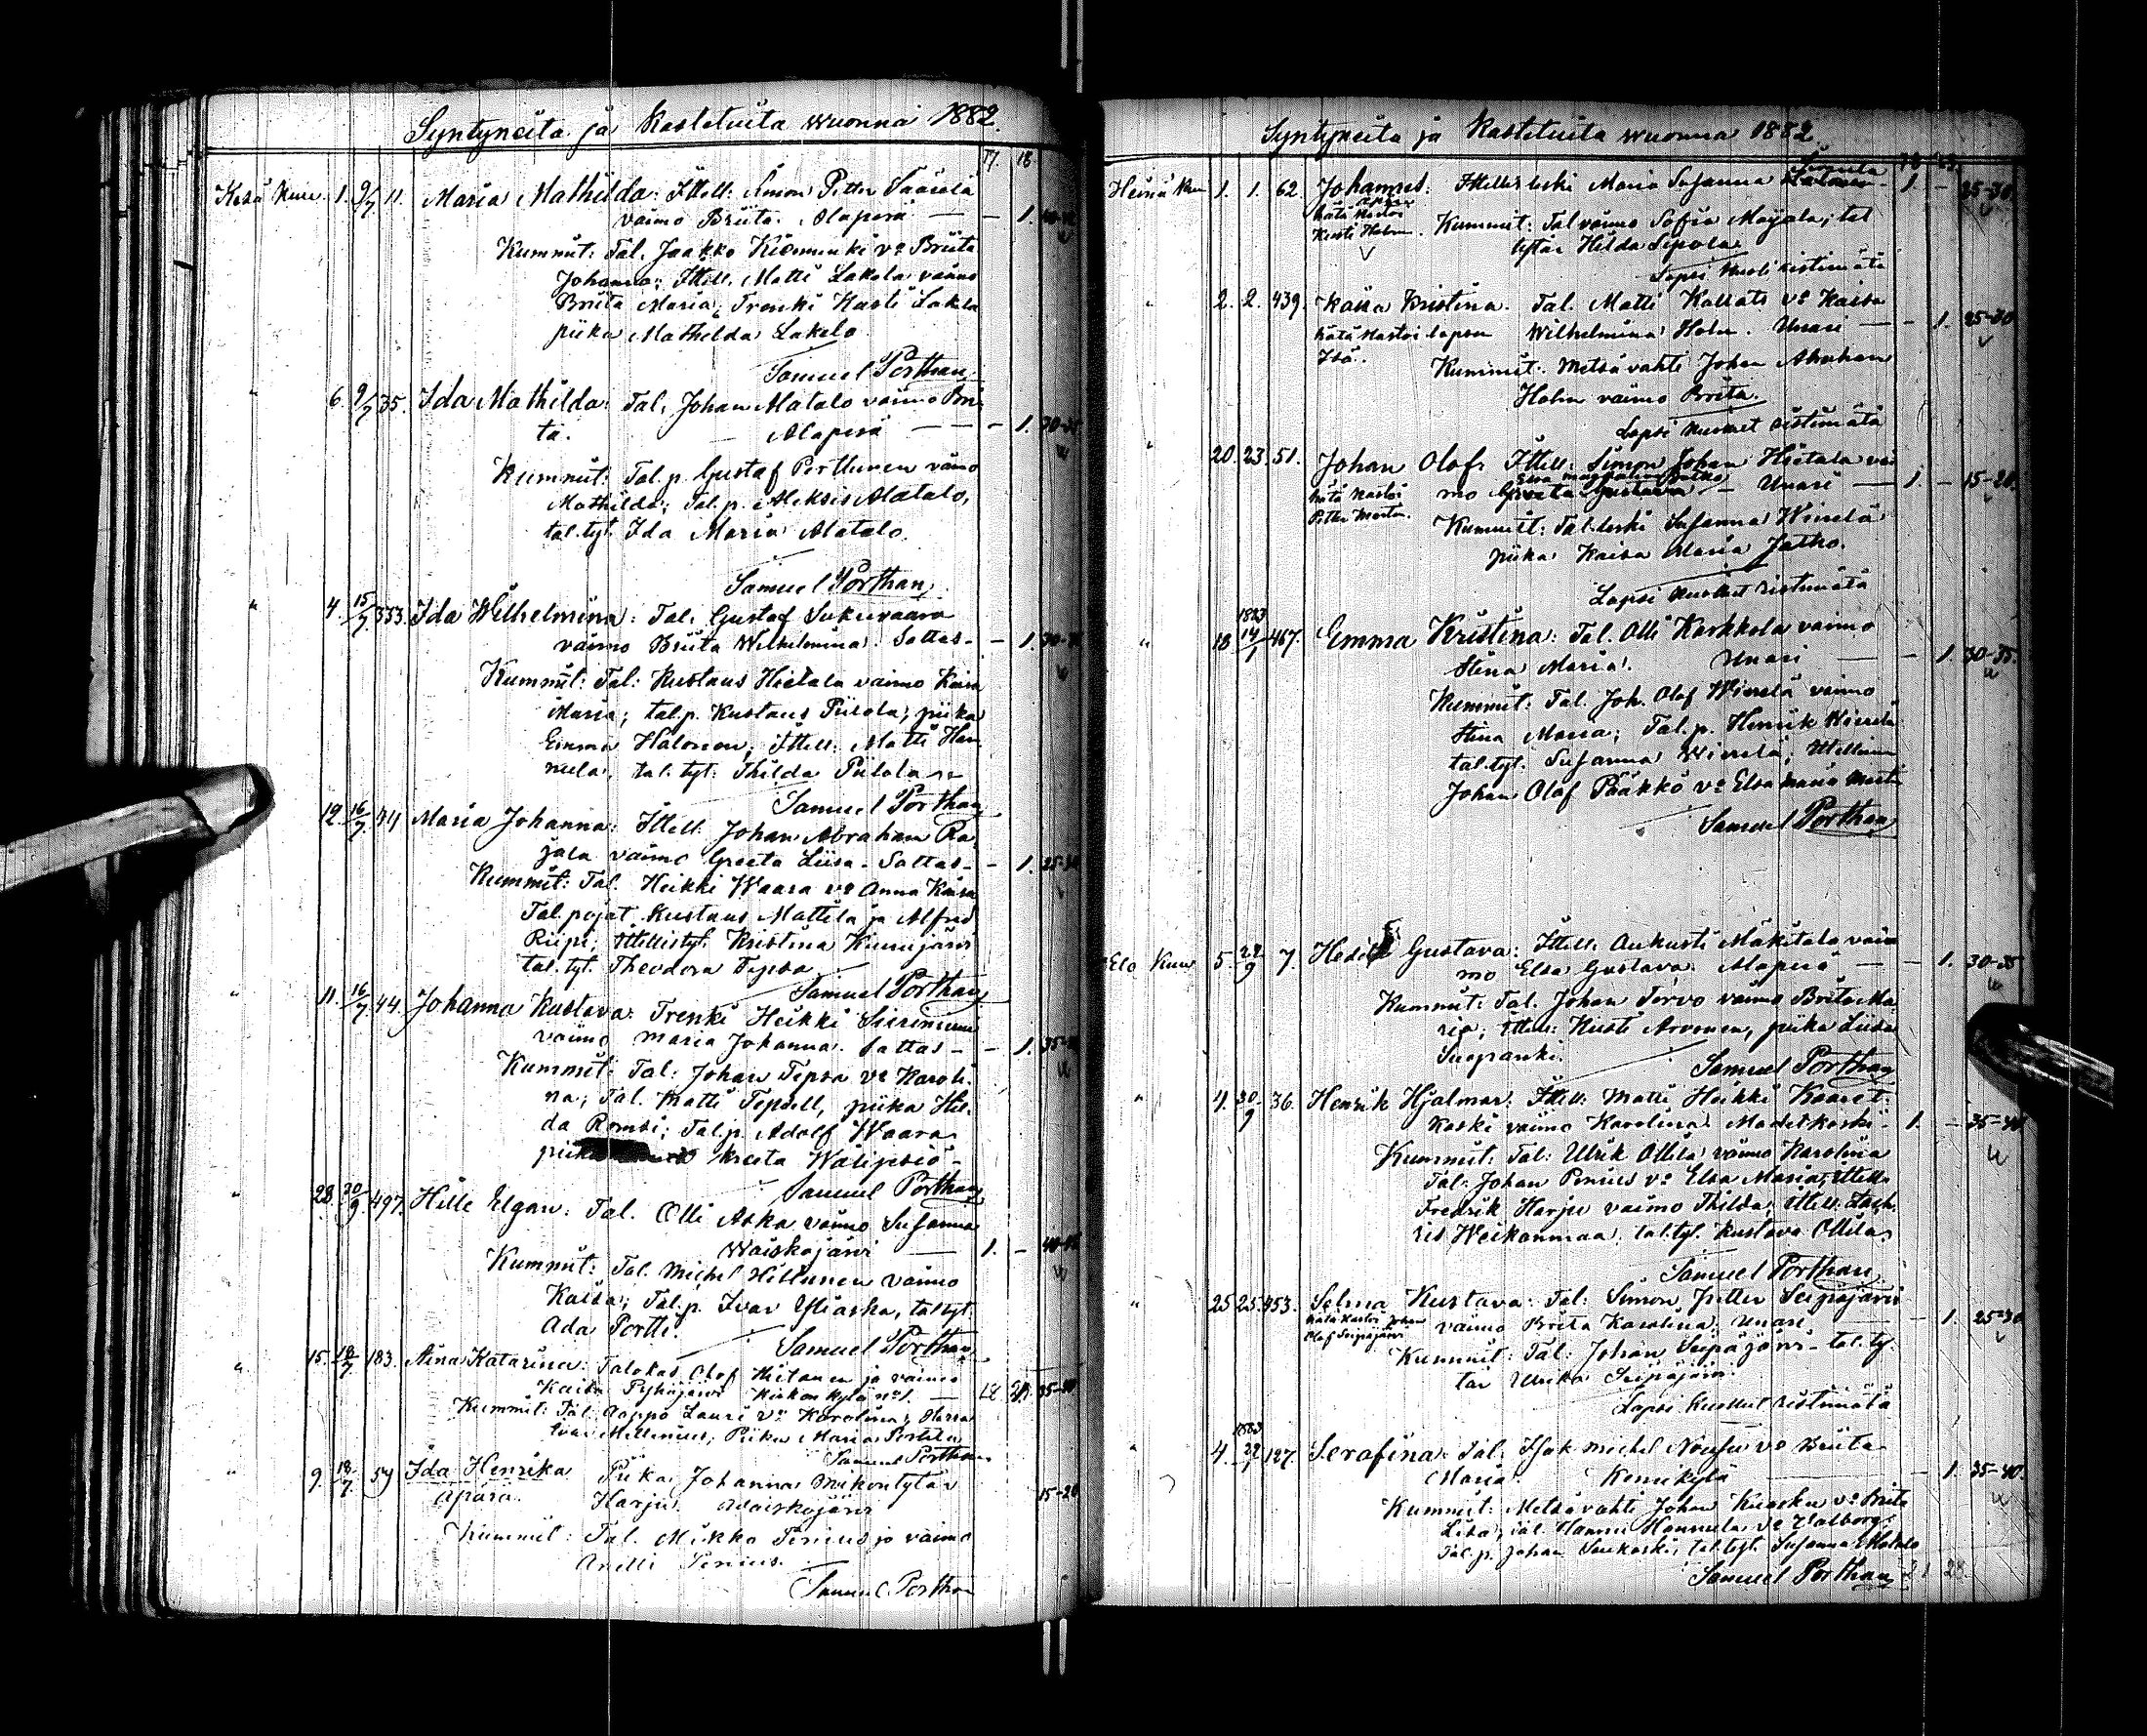 Syntyneitä ja Kastetuita wuonna 1882.
17. 18
Kesä Kuu. 1. 9/7 11. Maria Mathilda: Ittell. Simon Petter
vaimo Briita. Alaperä — — 1.
Kummit: Tal. Jaakko Kiemunki vo Briita
Johanna; Ittell. Matti Lakela vaimo
Briita Maria; Trenki Kusti Lakela
piika Mathilda Lakela.
Samuel Porthan
" 6. 9/7 35. Ida Mathilda: Tal. Johan Alatalo vaimo Bri
ta. — Alaperä — — 1.
Kummit: Tal. p. Gustaf Porthunen vaimo
Mathilda; Tal. p. Aleksis Alatalo,
tal. tyt. Ida Maria Alatalo.
Samuel Porthan
" 4. 15/7 353. Ida Wilhelmina: Tal. Gustaf Sukuvaara
vaimo Briita Wilhelmina. Sattas — 1.
Kummit: Tal: Kustaus Hietala vaimo Kaisa
Maria; tal. p. Kustaus Piilola; piika
Emma Halonen; Ittell. Matti Han
nula, tal. tyt. Thilda Piilola
Samuel Porthan
12. 16/7 Maria Johanna: Ittell. Johan Abraham Ra
jala vaimo Greeta Liisa. Sattas — 1. 25-30
Kummit: Tal. Heikki Waara vo Anna Kaisa
Tal. pojat Kustaus Mattila ja Alfred
Riipi; Ittellistyt. Kristina
tal. tyt. Theodora Tepsa
Samuel Porthan
" 11. 16/7 44. Johanna Kustava: Trenki Heikki
vaimo Maria Johanna. Sattas — 1.
Kummit: Tal: Johan Tepsa vo Karoli
na; Tal. Matti Tepsell, piika Hil
da Romsi; Tal. p. Adolf Waara
piika Kreeta
Samuel Porthan
" 28. 30/9 497. Hille Elgan: Tal. Olli Aska vaimo Susanna
Waiskojärvi — 1. —
Kummit: Tal. Michel Hiltunen vaimo
Kaisa; Tal. p. Ivar Yliaska, tal. tyt.
Ada Portti.
Samuel Porthan
" 15. 18/7 183. Aina Katarina: Talokas Olof Hietanen ja vaimo
Kaisa Pyhäjärvi Kirkonkylä no 1. —
Kummit: Tal. Aappo Lauri vo Karolina;
Piika Maria
Samuel Porthan
" 9. 18/7 59 Ida Henrika Piika Johanna Mikontytär
äpärä. Harju. Waiskojärvi 15-20
Kummit: Tal. Mikko Penius ja vaimo
Anelli Penius.
Samuel Porthan
Syntyneitä ja Kastetuita wuonna 1882
Heinä Kuu 1. 1. 62. Johannes: Ittellis leski Maria Susanna 1. — 25-30
hätä kastoi
Kusti Holm. Kummit: Tal vaimo Sofia Majala; tal
tytär Hilda Sepola
Lapsi kuoli ristimätä
" 2. 2. 439. Kaisa Kristina. Tal. Matti Kallats vo Kaisa
hätä kastoi lapsen Wilhelmina Holm. Unari — — 1. 25-30
Isä. Kummit: Metsävahti Johan Abraham
Holm vaimo Brita.
Lapsi kuollut ristimätä
" 20. 23. 51. Johan Olof: Ittell. Simon Johan Hietala vai
mo Greeta Gustava — Unari — 1. — 15-20.
hätä kastoi
Petter Martin. Kummit: Tal. leski Susanna Wierelä
piika Kaisa Maria Jatko.
Lapsi kuollut ristimätä
1883
" 18 14/1 467. Emma Kristina: Tal. Olli Karkkola vaimo
Stina Maria. Unari — — 1. 30-35.
Kummit: Tal. Joh. Olof Wierelä vaimo
Stina Maria; Tal. p. Henrik Wierelä
tal. tyt. Susanna Wierelä; Ittellinen
Johan Olof Pääkkö vo Elsa Maria
Samuel Porthan
Elo Kuu 5. 24/9 7. Hedi Gustava: Ittell. Aukusti Mäkitalo vai
mo Elsa Gustava. Alaperä — — 1. 30-35
Kummit: Tal. Johan Torvo vaimo Brita Ma
ria; Ittell: Kusti Arvonen, piika Liisa
Siepanki.
Samuel Porthan
" 4. 30/9 36. Henrik Hjalmar: Ittell. Matti Heikki Kaaret
koski vaimo Karolina. Madetkoski — 1. — 35-40
Kummit: Tal: Ulrik Ollila vaimo Karolina
Tal: Johan Penius vo Elsa Maria; Ittell.
Fredrik Harju vaimo Thilda; Ittell. Zach
ris Weikanmaa, tal. tyt. Kustava Ollila
Samuel Porthan
" 25 25 453. Selma Kustava: Tal: Simon Petter Seipäjärvi
hätä kastoi Johan vaimo Brita Karolina. Unari — 1. 25-30
Olof Seipäjärvi
Kummit: Tal: Johan Seipäjärvi tal. ty
tär Ulrika Seipäjärvi
Lapsi kuollut ristimätä
1883
" 4. 22/1 127. Serafina: Tal. Isak Michel Nousu vo Briita
Maria. Kersikylä — 1. 35-40.
Kummit: Metsävahti Johan Kuosku vo Brita
Lisa; tal. Hannu Hannula vo Valborg;
Tal. p. Johan Saukoski, tal. tyt. Susanna
Samuel Porthan